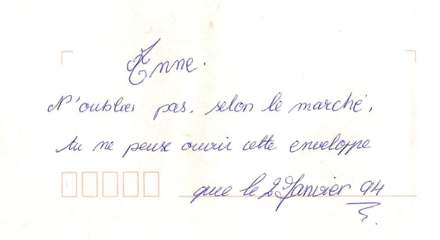 Anne.
N'oublies pas, selon le marché,
tu ne peux ouvrir cette enveloppe
que le 29 Janvier 94